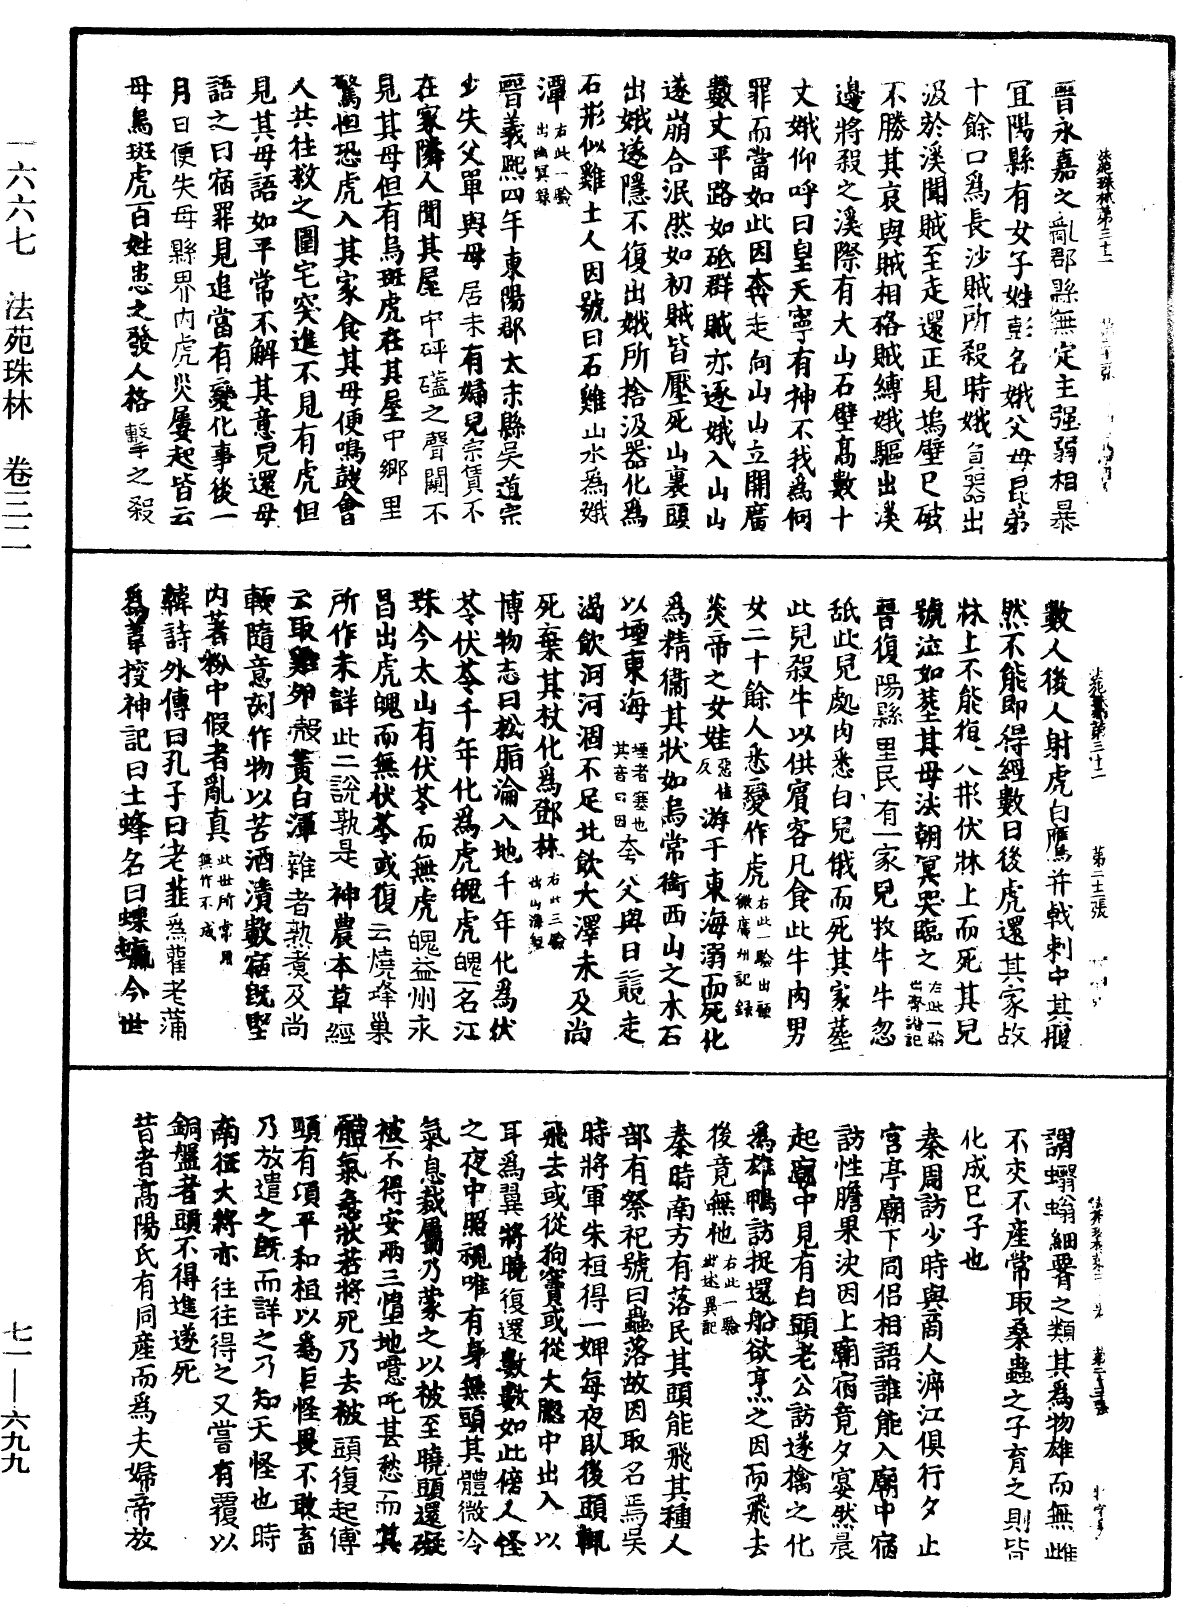 一六六七　法苑珠林　卷三二
七一—六九九
法苑珠林第三十二
晉永嘉之亂郡縣無定主强弱相暴
宜陽縣有女子姓彭名娥父母昆弟
十餘口爲長沙賊所殺時娥負器出
汲於溪聞賊至走還正見塢壁已破
不勝其哀與賊相格賊縛娥驅出溪
邊將殺之溪際有大山石壁髙數十
丈娥仰呼曰皇天寧有神不我爲何
罪而當如此因奔走向山山立開廣
數丈平路如砥群賊亦逐娥入山山
遂崩合泯然如初賊皆壓死山裏頭
出娥遂隱不復出娥所捨汲器化爲
石形似雞土人因號曰石雞山水爲娥
潭右此一驗出幽冥録
晉義熈四年東陽郡太末縣吴道宗
少失父單與母居未有婦兒宗賃不
在家隣人聞其屋中砰磕之聲闚不
見其母但有烏斑虎在其屋中鄉里
驚怛恐虎入其家食其母便鳴鼓會
人共往救之圍宅突進不見有虎但
見其母語如平常不解其意兒還母
語之曰宿罪見追當有變化事後一
月日便失母縣界内虎災屢起皆云
母烏斑虎百姓患之發人格擊之殺
第二十二張
數人後人射虎白鷹并戟刺中其腹
然不能即得經數日後虎還其家故
牀上不能復人形伏牀上而死其兒
號泣如葬其母法朝冥哭臨之右此一驗出齊諧記
晉復陽縣里民有一家兒牧牛牛忽
舐此兒處肉悉白兒俄而死其家葬
此兒殺牛以供賓客凡食此牛肉男
女二十餘人悉變作虎右此一驗出顧微廣州記録
炎帝之女娃惡佳反游于東海溺而死化
爲精衞其狀如烏常銜西山之木石
以堙東海堙者塞也其音曰因夸父與日競走
渴飲河河涸不足北飲大澤未及尚
死棄其杖化爲鄧林右此三驗出山海經
博物志曰松脂淪入地千年化爲伏
苓伏苓千年化爲虎魄虎魄一名江
珠今太山有伏苓而無虎魄益州永
昌出虎魄而無伏苓或復云燒蜂巢
所作未詳此二説孰是神農本草經
云取雞卵㲉黄白渾雜者熟煮及尚
軟隨意刻作物以苦酒漬數宿旣堅
内著粉中假者亂真此世所常用無作不成
韓詩外傳曰孔子曰老韭爲雚老蒲
爲葦搜神記曰土蜂名曰蜾蠃今世
謂蠮螉細署之類其爲物雄而無雌
不交不産常取桑蟲之子育之則皆
化成巳子也
秦周訪少時與商人泝江俱行夕止
宫亭廟下同侣相語誰能入廟中宿
訪性膽果決因上廟宿竟夕宴然晨
起廟中見有白頭老公訪遂擒之化
爲雄鴨訪捉還船欲烹之因而飛去
後竟無他右此一驗出述異記
秦時南方有落民其頭能飛其種人
部有祭祀號曰蟲落故因取名焉吴
時將軍朱桓得一婢每夜卧後頭輒
飛去或從狗竇或從大䆫中出入以
耳爲翼將曉復還數數如此傍人怪
之夜中照視唯有身無頭其體微冷
氣息裁屬乃蒙之以被至曉頭還礙
被不得安兩三墮地噫吒甚愁而其
體氣急狀若將死乃去被頭復起傅
頭有頃平和桓以爲巨怪畏不敢畜
乃放遣之旣而詳之乃知天怪也時
南征大將亦往往得之又嘗有覆以
銅盤者頭不得進遂死
昔者高陽氏有同産而爲夫婦帝放